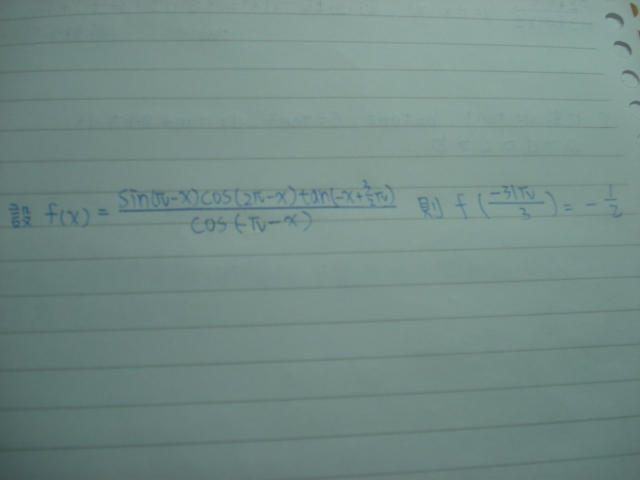 設 f(x) = \frac{sin(π-x)cos(2π-x)tan(-x+\frac{3}{2}π)}{cos(-π-x)} 則 f(\frac{-31π}{3}) = -\frac{1}{2}